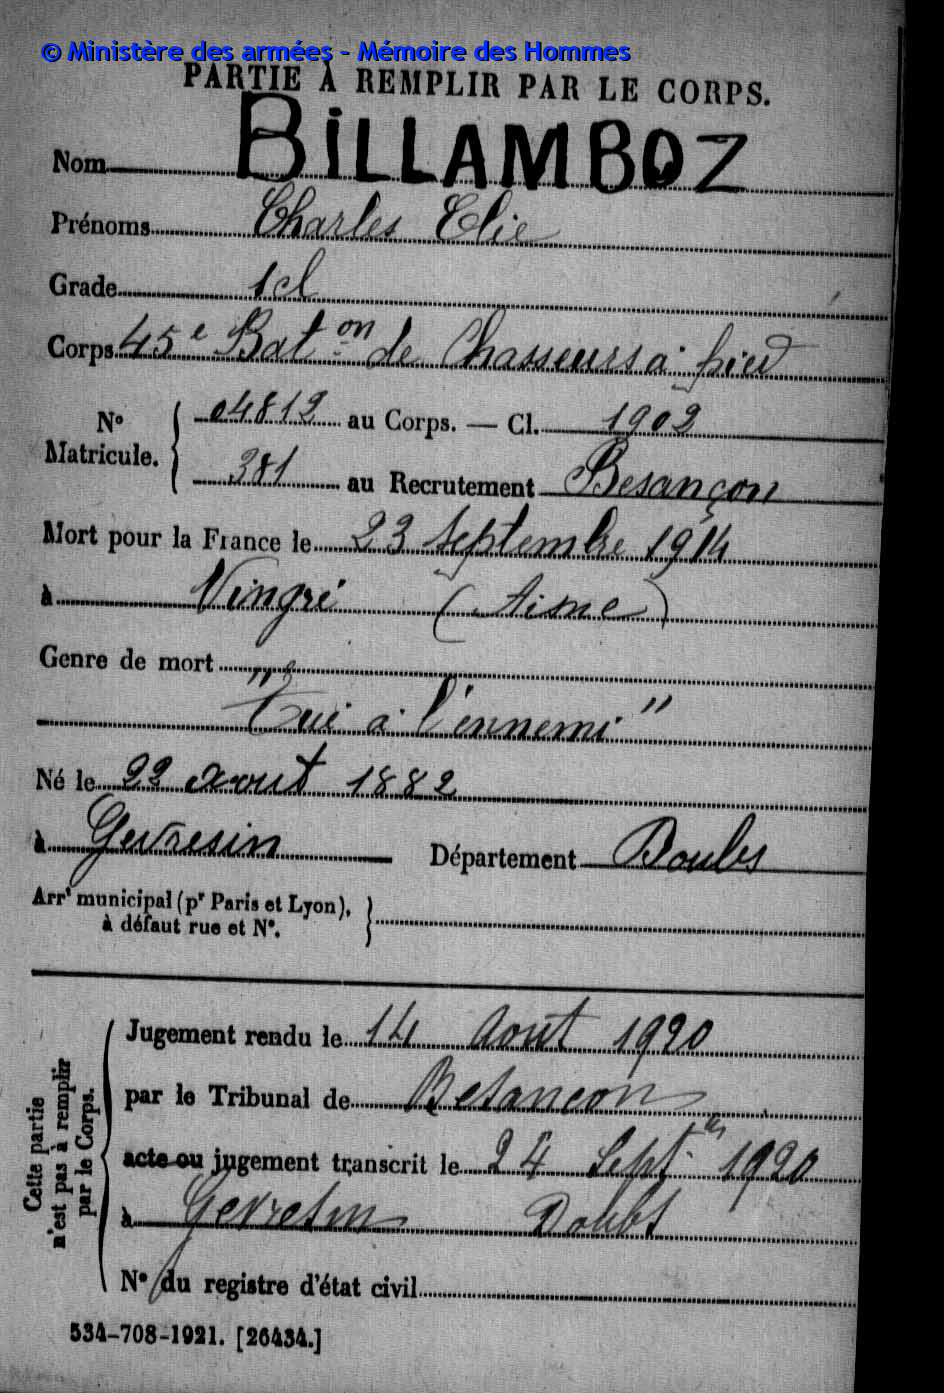 © Ministère des armées - Mémoire des Hommes
PARTIE À REMPLIR PAR LE CORPS.
Nom BiLLAMBOZ
Prénoms Charles Elie
Grade 1cl
Corps 45e Bat.on de Chasseurs à pied
04812 au Corps. — Cl. 1902
No Matricule.
381 au Recrutement Besançon
Mort pour la France le 23 Septembre 1914
à Vingré (Aisne)
Genre de mort
"Tué à l'ennemi"
Né le 22 août 1882
à Gevresin Département Doubs
Arrt municipal (pr Paris et Lyon),
à défaut rue et No.
Cette partie
n'est pas à remplir
par le Corps.
Jugement rendu le 14 Août 1920
par le Tribunal de Besançon
acte ou jugement transcrit le 24 Sept. 1920
à Gevresin Doubs
No du registre d'état civil
534-708-1921. [26434.]